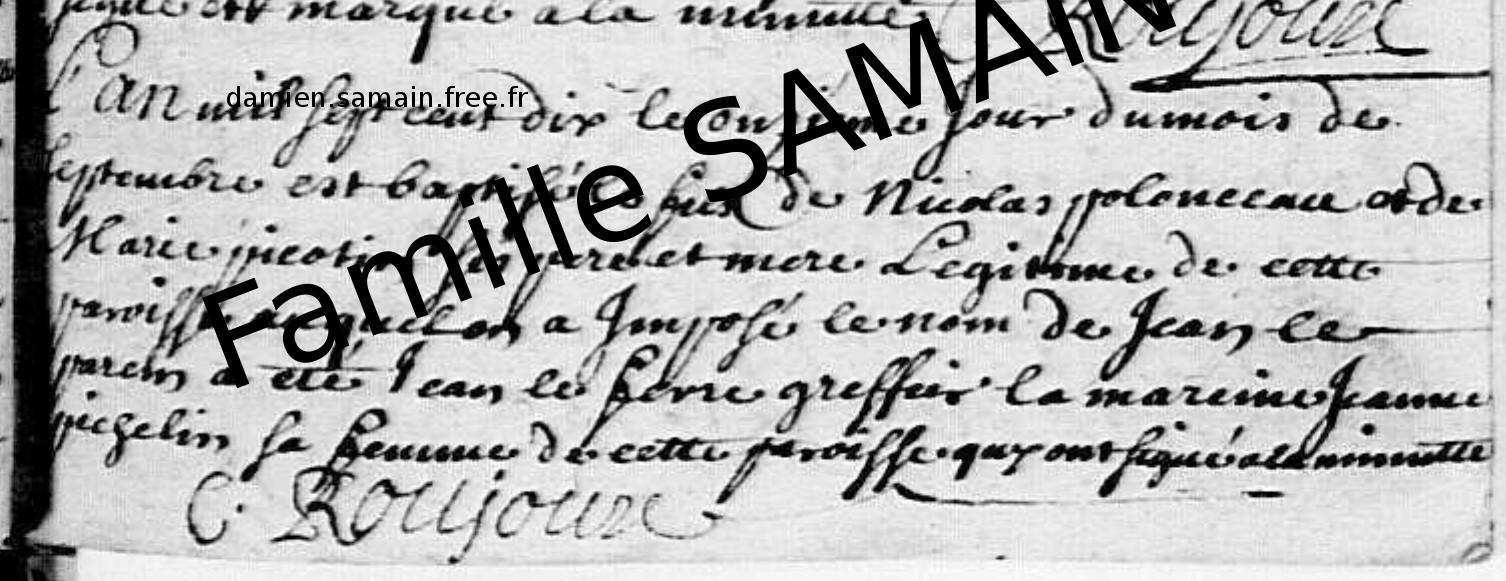 signé et marqué a la minutte C Roujoux
L'an mil sept cent dix le onzieme jour du mois de
septembre est baptisé le fils de Nicolas poloneeau et de
Marie picotin ses pere et mere Legitime de cette
paroisse auquel on a Imposé le nom de Jean le
parein a eté Jean le ferre greffier la mareine Jeanne
pichelin sa femme de cette paroisse quy ont signé a la minutte
C. Roujoux
damien.samain.free.fr
Famille SAMAIN